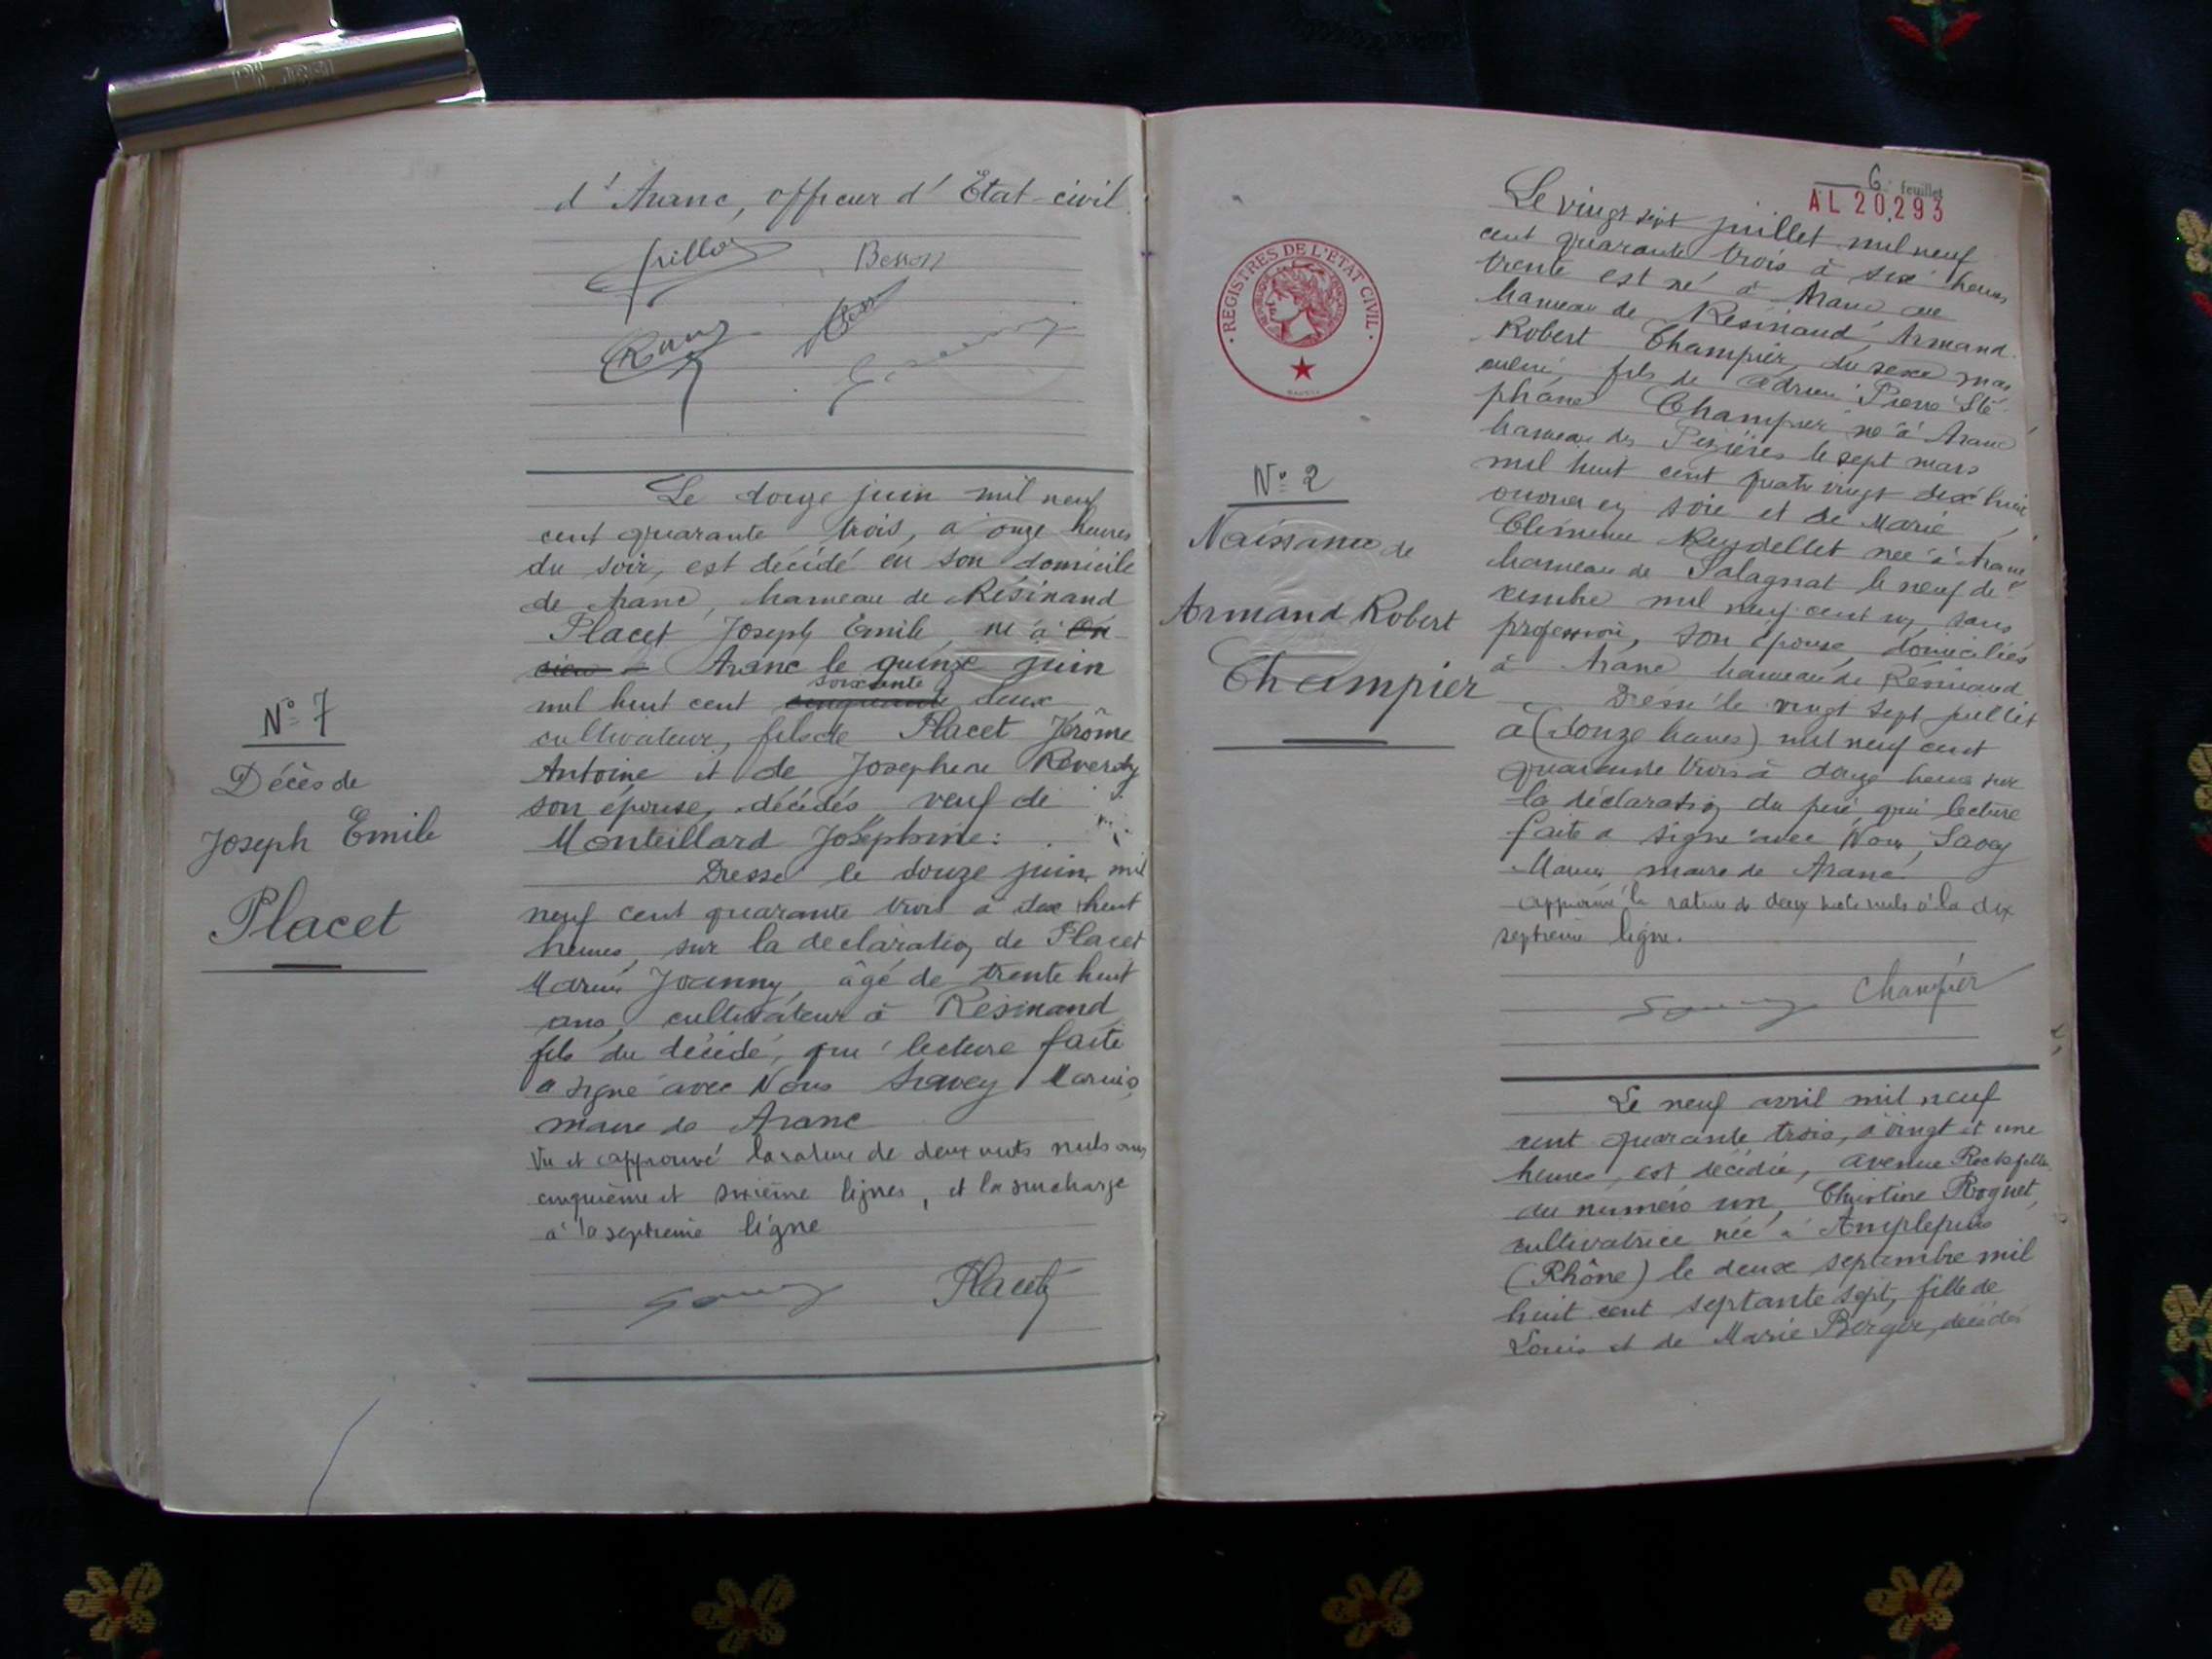 d'Aranc, officier d'Etat-civil
Besson
Le douze juin mil neuf
cent quarante trois, à onze heures
du soir, est décédé en son domicile
de Aranc, hameau de Résinand
Placet Joseph Emile, né à
Aranc le quinze juin
soixante
mil huit cent cinquante deux
cultivateur, fils de Placet Jérôme
Antoine et de Josephine Reverdy
son épouse, décédés, veuf de
Monteillard Joséphine:
Dressé le douze juin mil
neuf cent quarante trois à dix huit
heures, sur la déclaration de Placet
Marius Joanny, âgé de trente huit
ans, cultivateur à Résinand
fils du décédé, qui lecture faite
a signé avec Nous Savey Marius
maire de Aranc
Vu et approuvé la rature de deux mots nuls aux
cinquième et sixième lignes, et la surcharge
à la septième ligne
Placet
N° 7
Décès de
Joseph Emile
Placet
6 feuillet
AL 20.293
REGISTRES DE L'ÉTAT CIVIL
N° 2
Naissance de
Armand Robert
Champier
Le vingt sept juillet mil neuf
cent quarante trois à six heures
trente est né à Aranc au
hameau de Résinand, Armand
Robert Champier, du sexe mas
culin, fils de Adrien Pierre Sté
phane Champier né à Aranc
hameau des Pézières le sept mars
mil huit cent quatre vingt dix huit
ouvrier en soie et de Marie
Clémence Reydellet née à Aranc
hameau de Salagnat le neuf dé
cembre mil neuf cent un, sans
profession, son épouse, domiciliés
à Aranc hameau de Résinand
Dressé le vingt sept juillet
à (douze heures) mil neuf cent
quarante trois à douze heures sur
la déclaration du père, qui lecture
faite a signé avec Nous, Savey
Marius maire de Aranc
approuvé la rature de deux mots nuls à la dix
septième ligne.
Champier
Le neuf avril mil neuf
cent quarante trois, à vingt et une
heures, est décédée, avenue Rockfeller
au numéro un, Christine Roguet,
cultivatrice née à Amplepuis
(Rhône) le deux septembre mil
huit cent septante sept, fille de
Louis et de Marie Berger, décédés